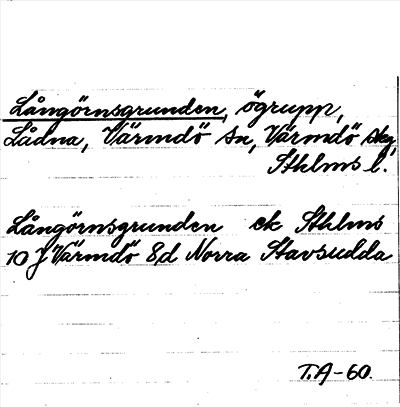 Långörnsgrunden, ögrupp,
Lådna, Värmdö sn, Värmdö skg,
Sthlms l.
Långörnsgrunden ek Sthlms
10 J Värmdö 8d Norra Stavsudda
T.A-60.